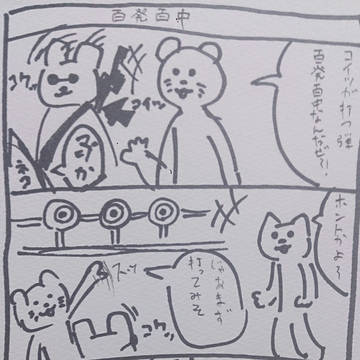 百発百中
コイツが打つ弾
百発百中なんだぜ?!
コイツ
コクッ
ネコ
ホントかよ〜
じゃあまず
打ってみそ
スッ
コクッ